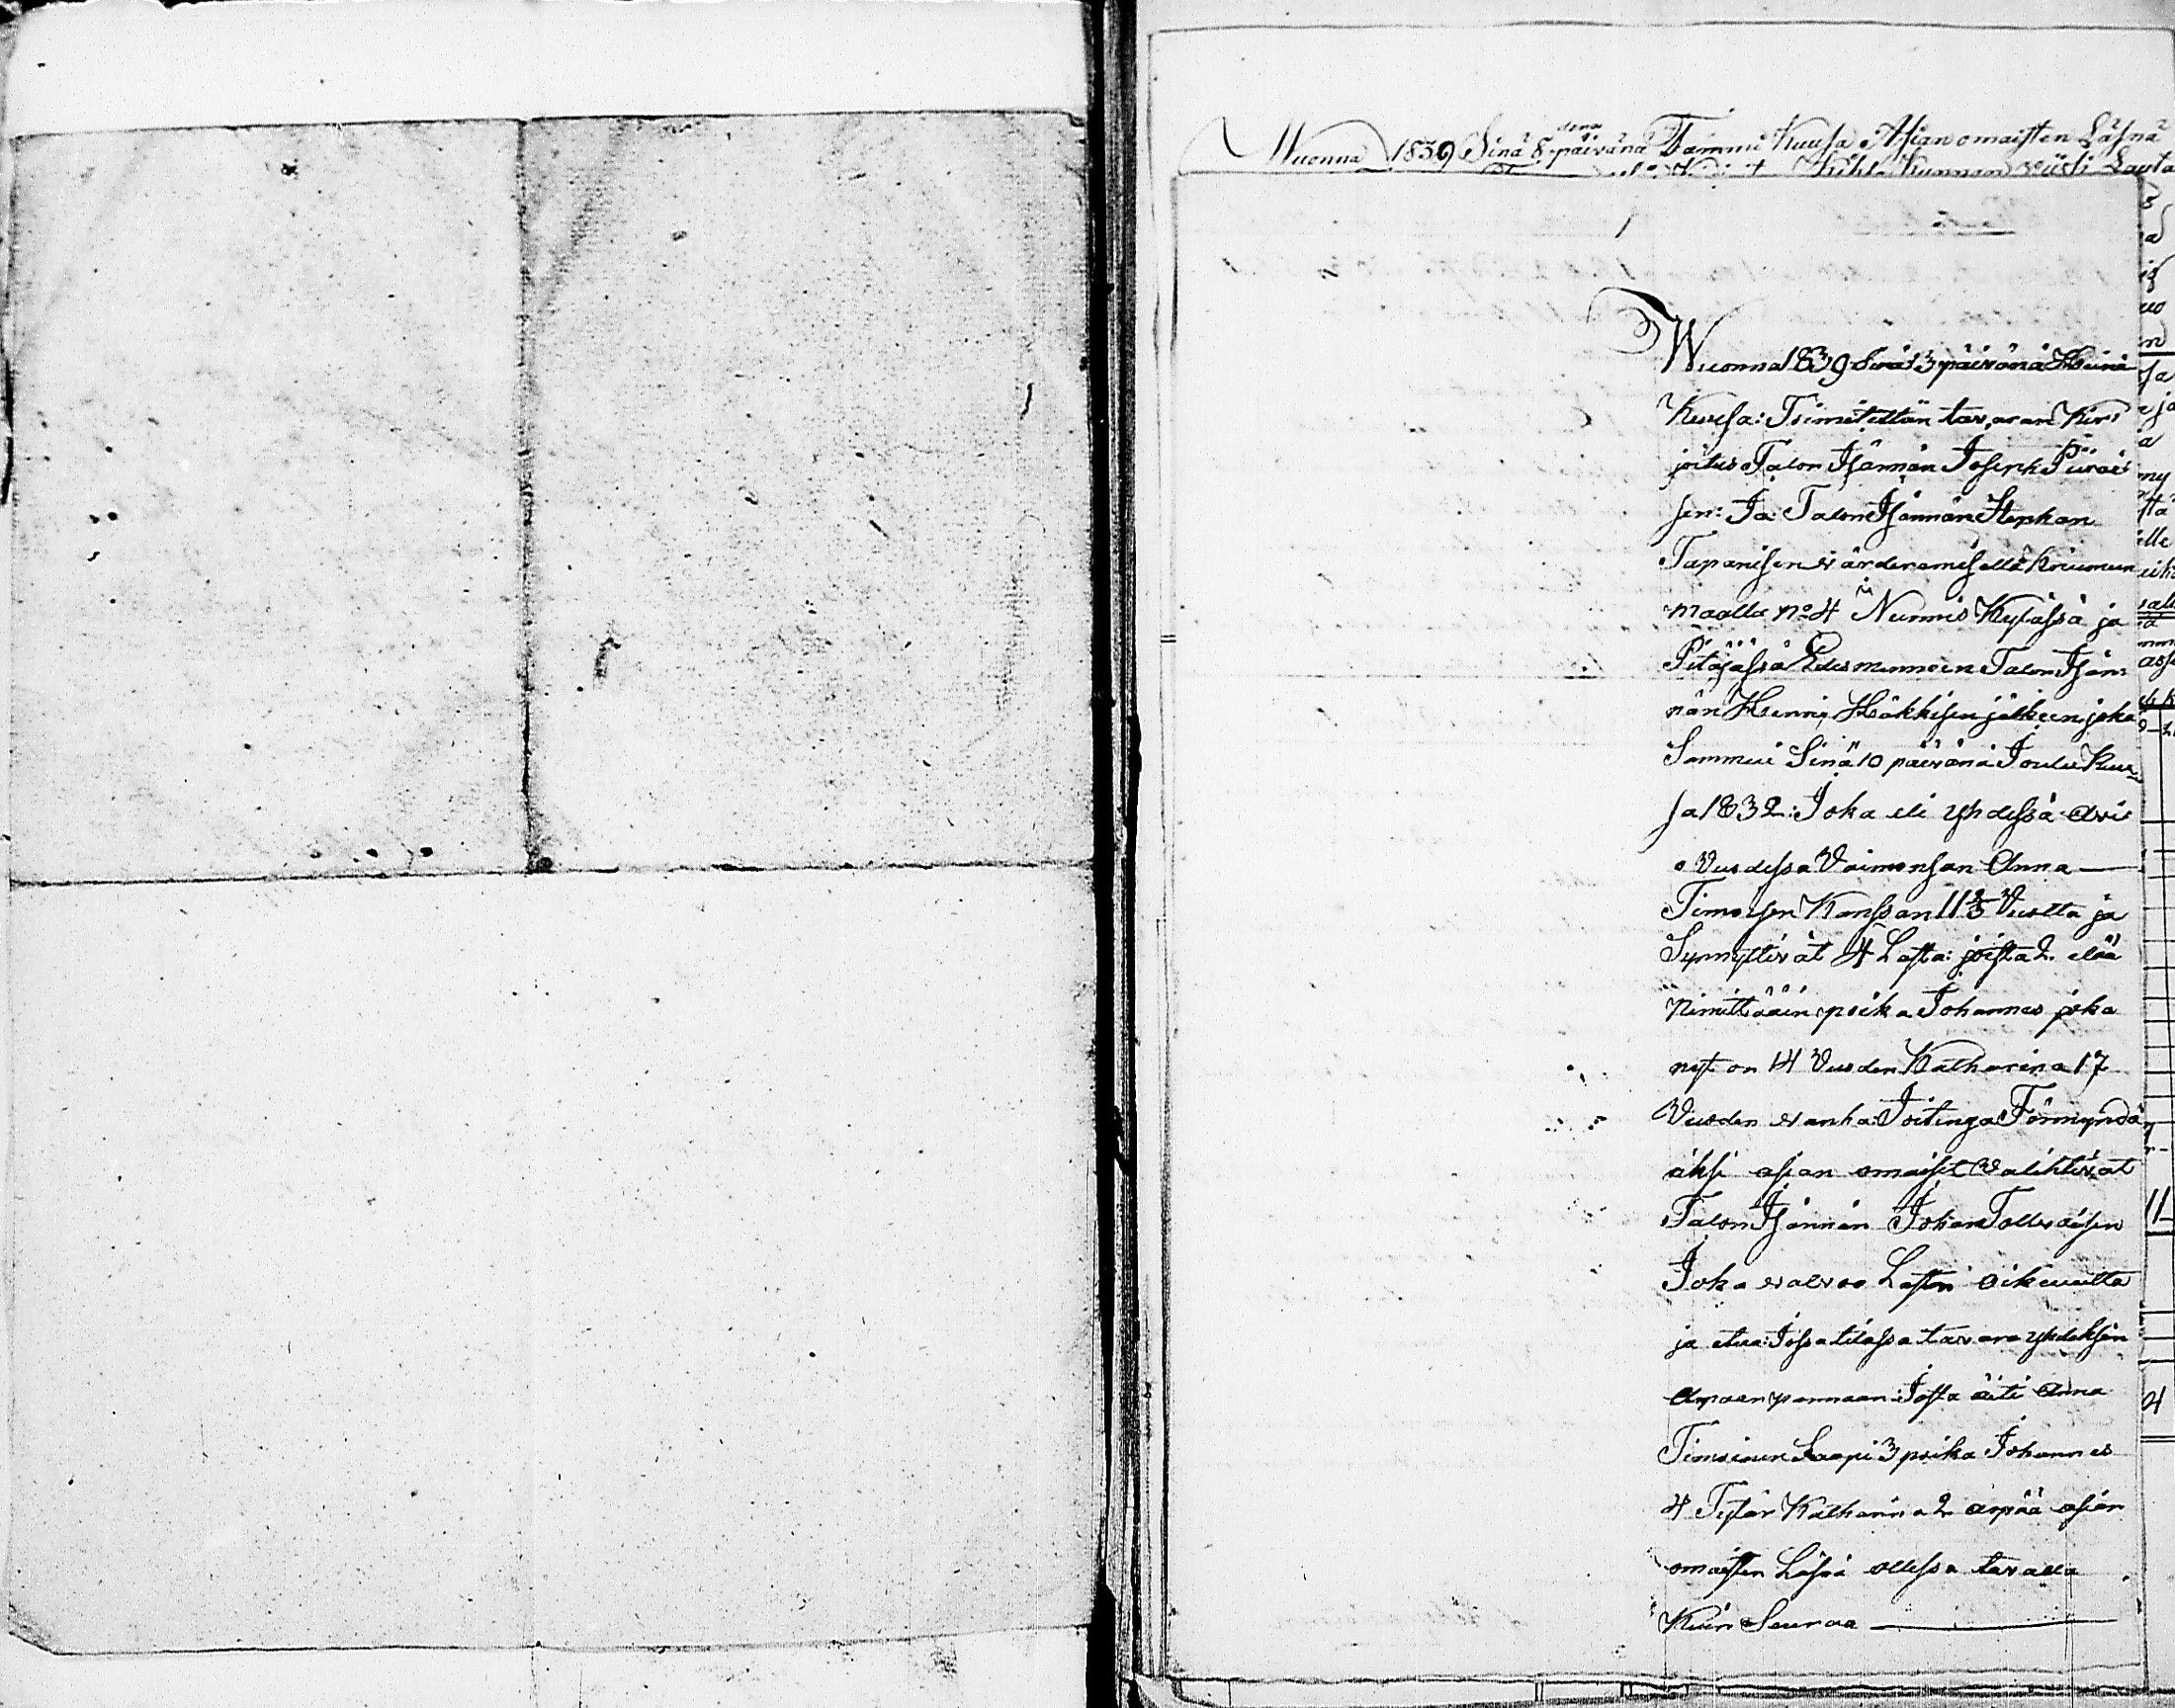 Wuonna 1839 Sinä 8 dena päivänä Tammi Kuusa Asjan omaisten Läsnä
Kihla Kunnan Lauta
Wuonna 1839 Sinä 13 päivänä Heinä
Kuusa: Toimitettän tavaran Kir¤
joitus Talon Isännän Joseph Piirai¤
sen: Ja Talon Isännän Stephan
Tapanisen värderamisella Kruunun
maalla No 4 Nurmis Kylässä ja
Pitäjässä Edesmennen Talon Isän¤
nän Henrig Häkkisen jälkeen joka
Sammui Sinä 10 päivänä Joulu Kuu¤
sa 1832: Joka eli yhdessä Avi¤
o Vuodessa Vaimonsan Anna —
Timoisen Kanssan 11 2/3 Vuotta ja
Synnyttivät 4 Lasta: joista 2 elää
Nimittääin poika Johannes joka
nyt on 14 Vuoden Katharina 17
Vuoden vanha: Joitenga Förmyndä
äksi asian omaiset Valihtivat
Talon Isännän Johan Tolvaisen
Joka valvoo Lasten oikeuutta
ja etua: Jossa tilassa tavara yhdeksän
Arpaan pannaan: Josta äiti Anna
Timoinen Saapi 3 poika Johannes
4 Tytär Katharina 2 arpaa asian
omaisten Läsnä ollessa tavalla
Kuin Seuraa —
11
4